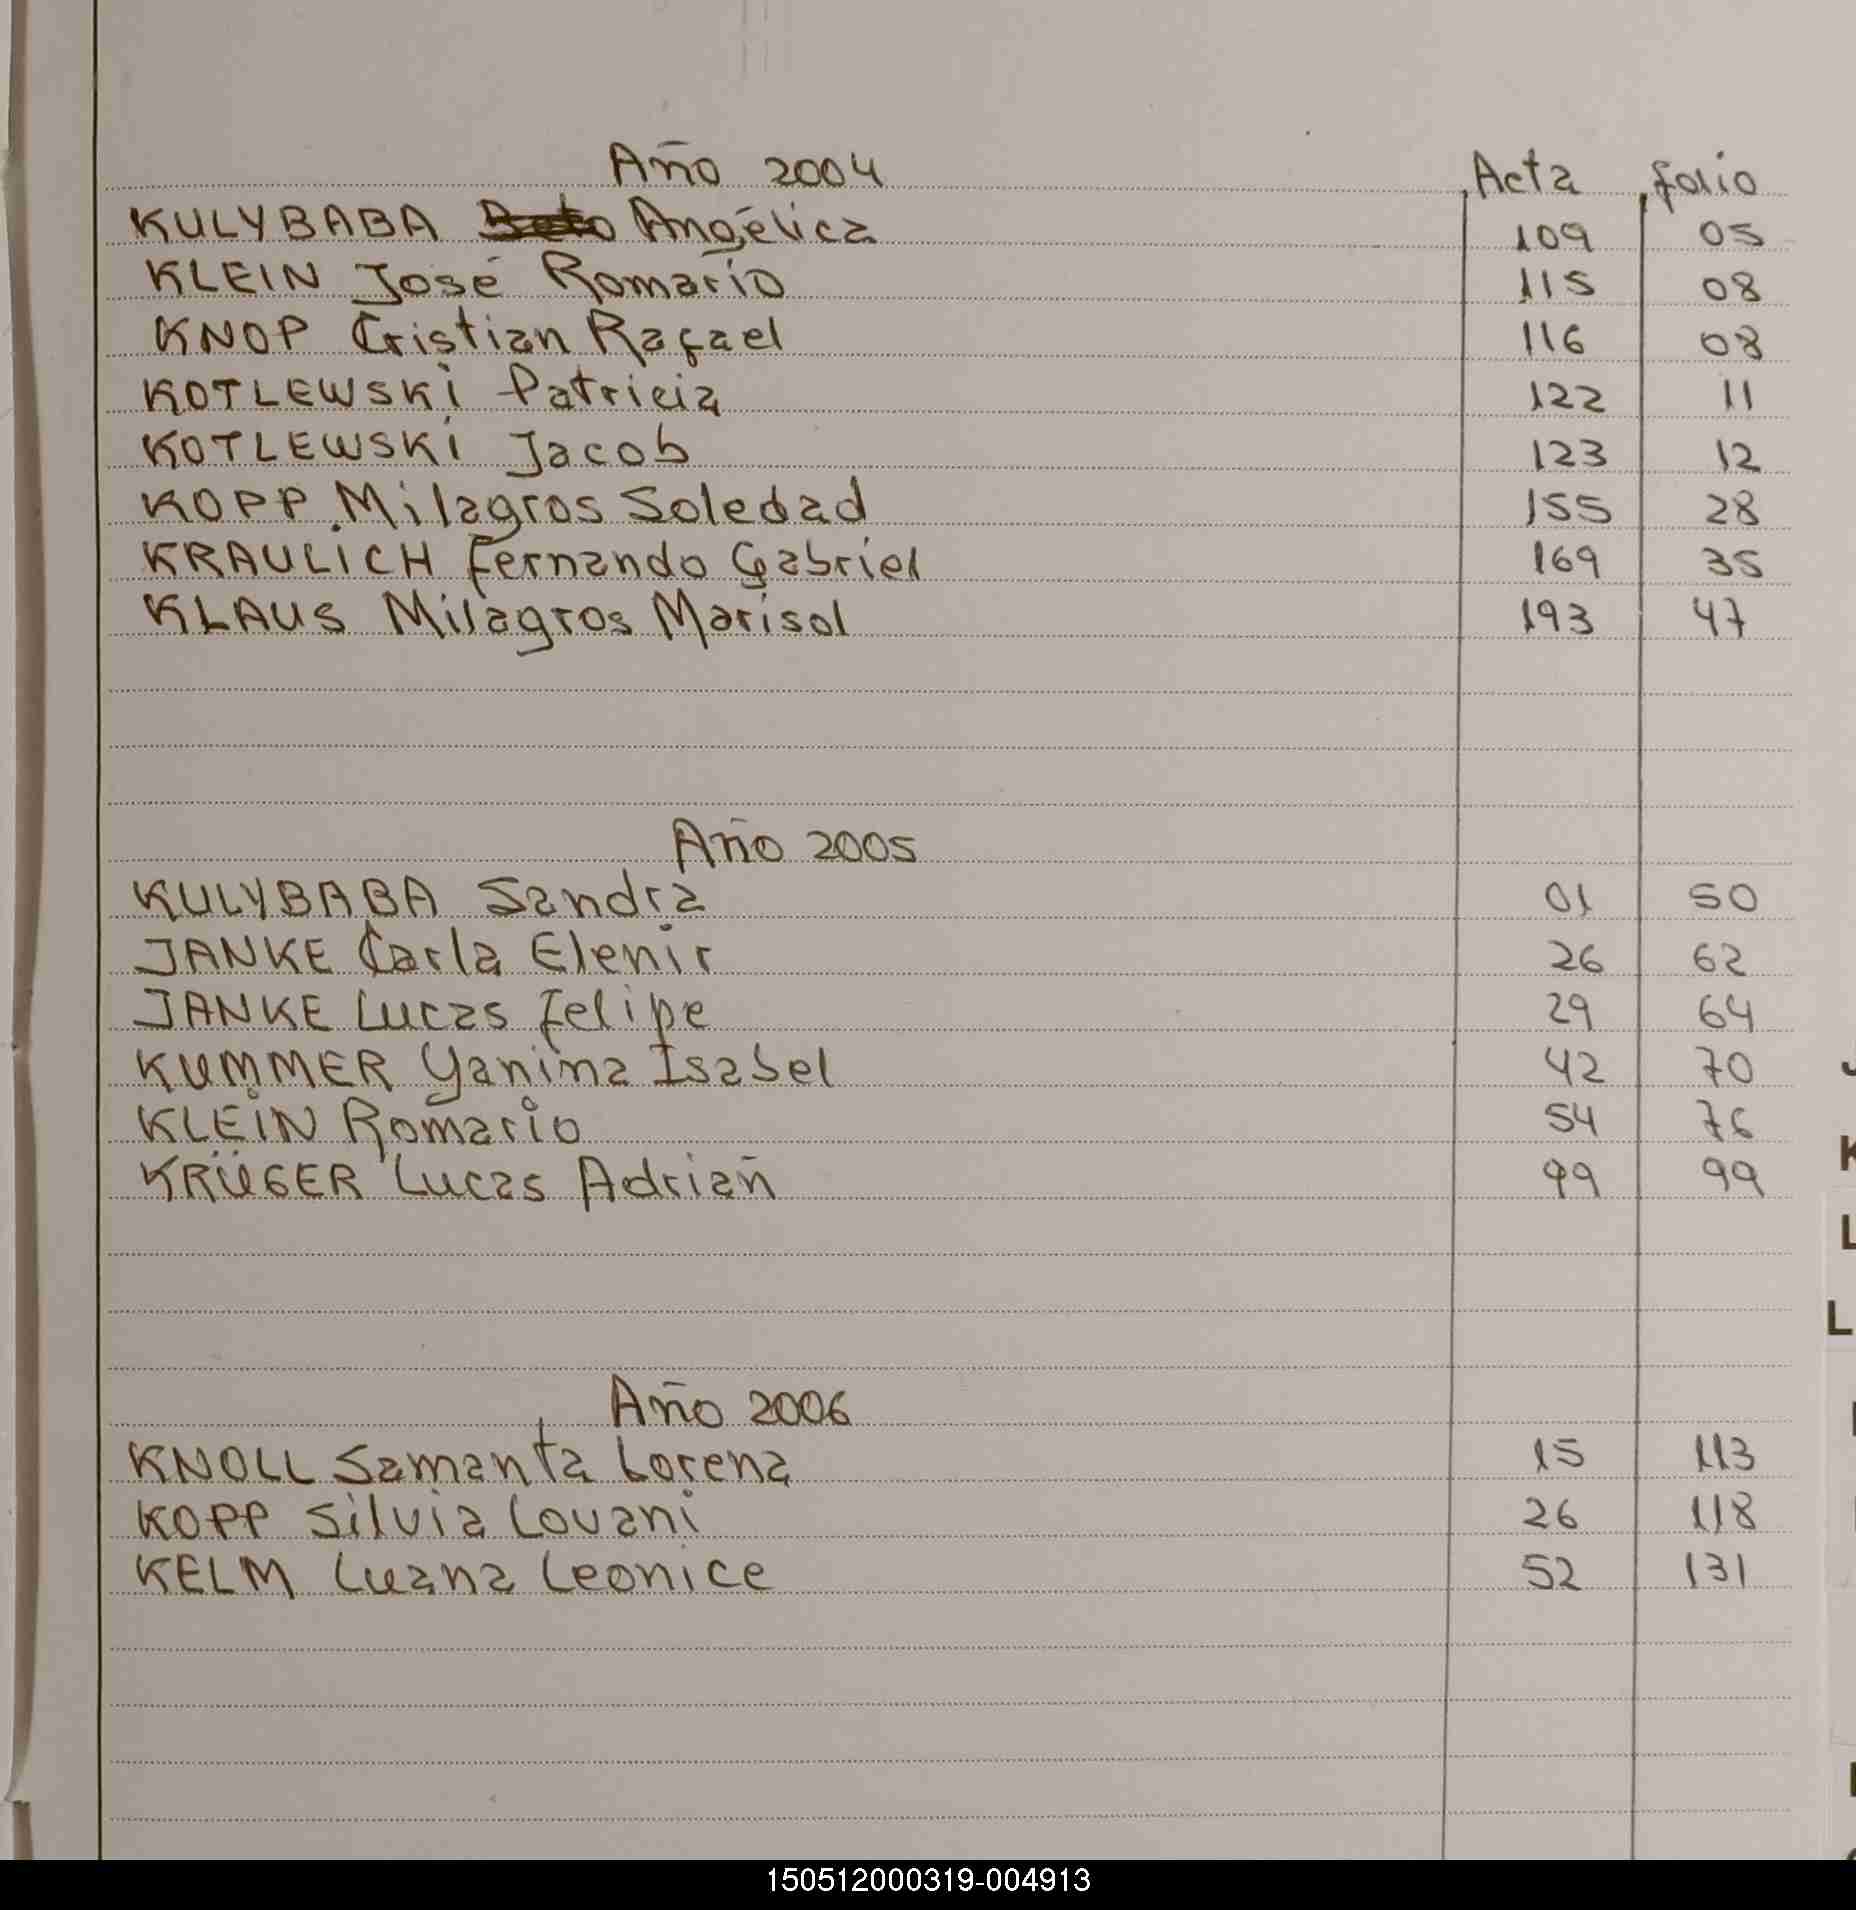 Año 2004 Acta folio
KULYBABA Angélica 109 05
KLEIN José Romario 115 08
KNOP Cristian Rafael 116 08
KOTLEWSKI Patricia 122 11
KOTLEWSKI Jacob 123 12
KOPP Milagros Soledad 155 28
KRAULICH Fernando Gabriel 169 35
KLAUS Milagros Marisol 193 47
Año 2005
KULYBABA Sandra 01 50
JANKE Carla Elenir 26 62
JANKE Lucas Felipe 29 64
KUMMER Yanina Isabel 42 70
KLEIN Romario 54 76
KRÜGER Lucas Adrián 99 99
Año 2006
KNOLL Samanta Lorena 15 113
KOPP Silvia Lovani 26 118
KELM Luana Leonice 52 131
150512000319-004913